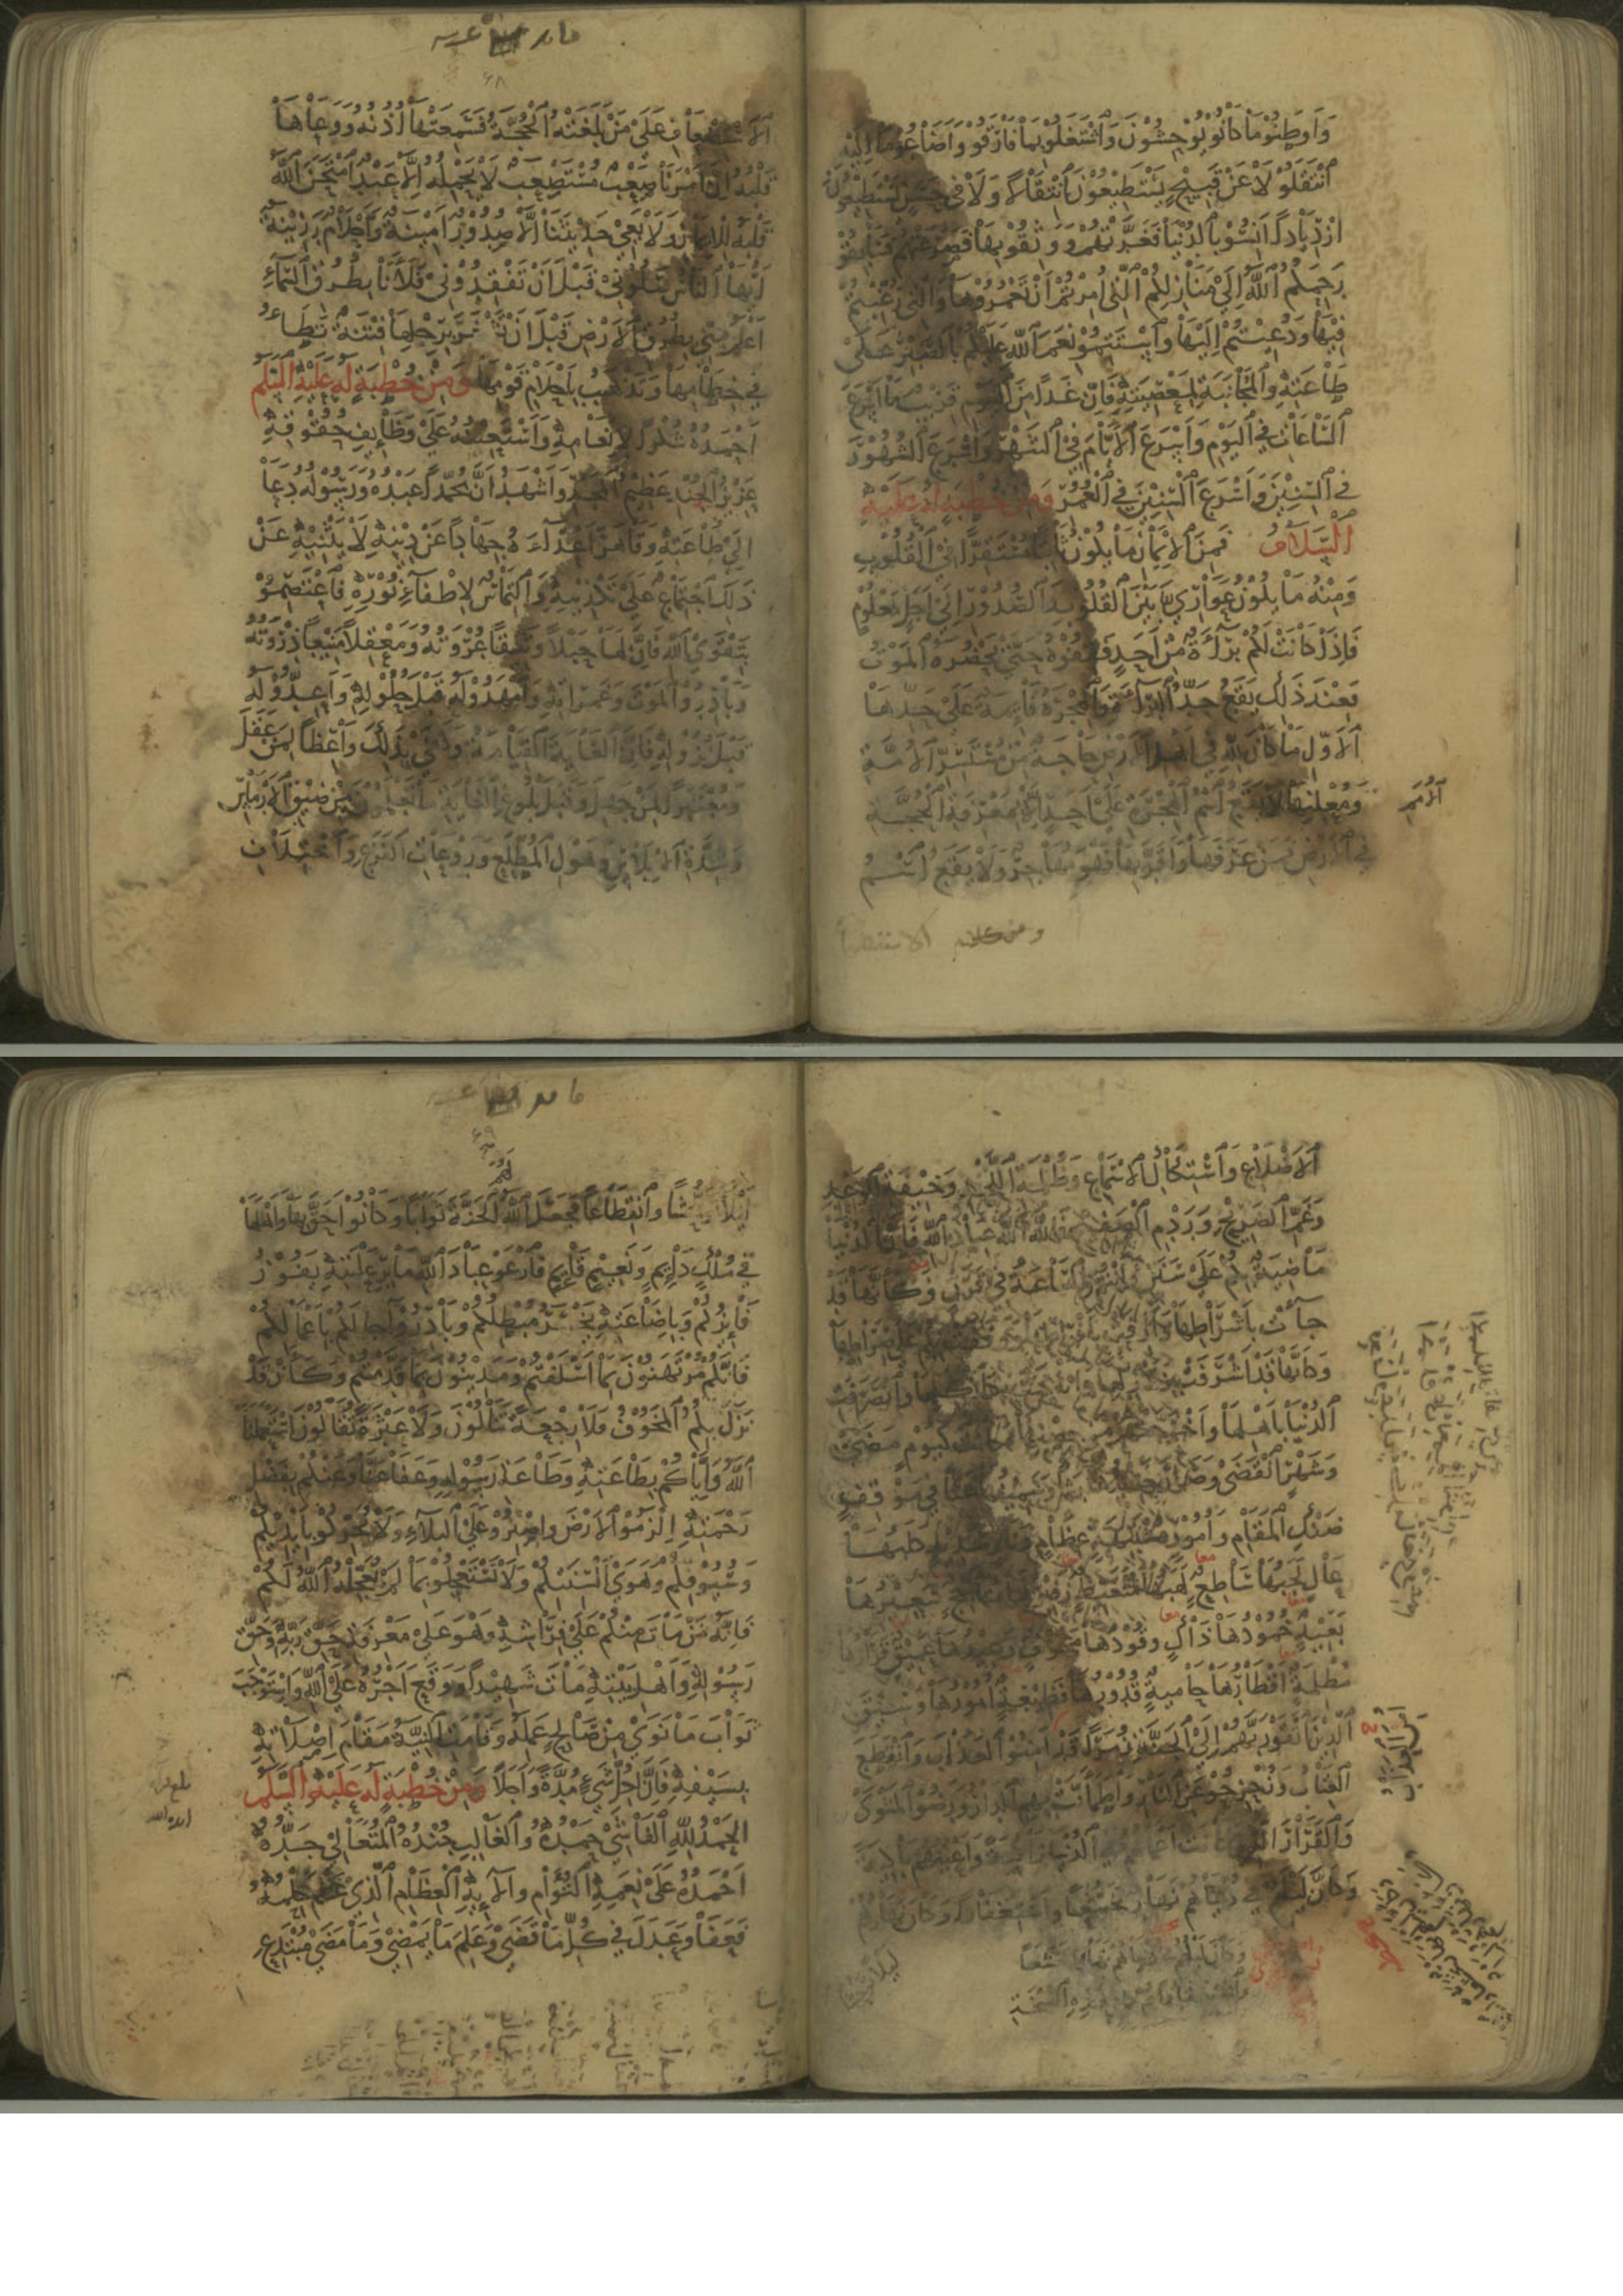 وَأَوْطَنُوا مَا كَانُوا يُوحِشُونَ وَاشْتَغَلُوا بِمَا فَارَقُوا وَأَضَاعُوا مَا إِلَيْهِ
انْتَقَلُوا لَا عَنْ قَبِيحٍ يَسْتَطِيعُونَ انْتِقَالًا وَلَا فِي حَسَنٍ يَسْتَطِيعُونَ
ازْدِيَادًا أَنِسُوا بِالدُّنْيَا فَغَرَّتْهُمْ وَوَثِقُوا بِهَا فَصَرَعَتْهُمْ فَسَابِقُوا
رَحِمَكُمُ اللَّهُ إِلَى مَنَازِلِكُمُ الَّتِي أُمِرْتُمْ أَنْ تَعْمُرُوهَا وَالَّتِي رُغِّبْتُمْ
فِيهَا وَدُعِيتُمْ إِلَيْهَا وَاسْتَتِمُّوا نِعَمَ اللَّهِ عَلَيْكُمْ بِالصَّبْرِ عَلَى
طَاعَتِهِ وَالْمُجَانَبَةِ لِمَعْصِيَتِهِ فَإِنَّ غَدًا مِنَ الْيَوْمِ قَرِيبٌ مَا أَسْرَعَ
السَّاعَاتِ فِي الْيَوْمِ وَأَسْرَعَ الْأَيَّامَ فِي الشَّهْرِ وَأَسْرَعَ الشُّهُورَ
فِي السِّنِينَ وَأَسْرَعَ السِّنِينَ فِي الْعُمُرِ وَمِنْ خُطْبَةٍ لَهُ عَلَيْهِ
السَّلَامُ فَمِنَ الْإِيمَانِ مَا يَكُونُ ثَابِتًا مُسْتَقِرًّا فِي الْقُلُوبِ
وَمِنْهُ مَا يَكُونُ عَوَارِيَ بَيْنَ الْقُلُوبِ وَالصُّدُورِ إِلَى أَجَلٍ مَعْلُومٍ
فَإِذَا كَانَتْ لَكُمْ بَرَاءَةٌ مِنْ أَحَدٍ فَقِفُوهُ حَتَّى يَحْضُرَهُ الْمَوْتُ
فَعِنْدَ ذَلِكَ يَقَعُ حَدُّ الْبَرَاءَةِ وَالْهِجْرَةُ قَائِمَةٌ عَلَى حَدِّهَا
الْأَوَّلِ مَا كَانَ لِلَّهِ فِي أَهْلِ الْأَرْضِ حَاجَةٌ مِنْ مُسْتَسِرِّ الْأُمَّةِ
وَمُعْلِنِهَا لَا يَقَعُ اسْمُ الْهِجْرَةِ عَلَى أَحَدٍ إِلَّا بِمَعْرِفَةِ الْحُجَّةِ
الْأُمَمِ
فِي الْأَرْضِ فَمَنْ عَرَفَهَا وَأَقَرَّ بِهَا فَهُوَ مُهَاجِرٌ وَلَا يَقَعُ اسْمُ
الْاسْتِضْعَافِ عَلَى مَنْ بَلَغَتْهُ الْحُجَّةُ فَسَمِعَتْهَا أُذُنُهُ وَوَعَاهَا
قَلْبُهُ إِنَّ أَمْرَنَا صَعْبٌ مُسْتَصْعَبٌ لَا يَحْمِلُهُ إِلَّا عَبْدٌ امْتَحَنَ اللَّهُ
قَلْبَهُ لِلْإِيمَانِ وَلَا يَعِي حَدِيثَنَا إِلَّا صُدُورٌ أَمِينَةٌ وَأَحْلَامٌ رَزِينَةٌ
أَيُّهَا النَّاسُ سَلُونِي قَبْلَ أَنْ تَفْقِدُونِي فَلَأَنَا بِطُرُقِ السَّمَاءِ
أَعْلَمُ مِنِّي بِطُرُقِ الْأَرْضِ قَبْلَ أَنْ تَشْغَرَ بِرِجْلِهَا فِتْنَةٌ تَطَأُ
فِي خِطَامِهَا وَتَذْهَبُ بِأَحْلَامِ قَوْمِهَا وَمِنْ خُطْبَةٍ لَهُ عَلَيْهِ السَّلَمُ
أَحْمَدُهُ شُكْرًا لِإِنْعَامِهِ وَأَسْتَعِينُهُ عَلَى وَظَائِفِ حُقُوقِهِ
عَزِيزُ الْجُنْدِ عَظِيمُ الْمَجْدِ وَأَشْهَدُ أَنَّ مُحَمَّدًا عَبْدُهُ وَرَسُولُهُ دَعَا
إِلَى طَاعَتِهِ وَقَاهَرَ أَعْدَاءَهُ جِهَادًا عَنْ دِينِهِ لَا يَثْنِيهِ عَنْ
ذَلِكَ اجْتِمَاعٌ عَلَى تَكْذِيبِهِ وَالْتِمَاسٌ لِإِطْفَاءِ نُورِهِ فَاعْتَصِمُوا
بِتَقْوَى اللَّهِ فَإِنَّ لَهَا حَبْلًا وَثِيقًا عُرْوَتُهُ وَمَعْقِلًا مَنِيعًا ذِرْوَتُهُ
وَبَادِرُوا الْمَوْتَ وَغَمَرَاتِهِ وَامْهَدُوا لَهُ قَبْلَ حُلُولِهِ وَأَعِدُّوا لَهُ
قَبْلَ نُزُولِهِ فَإِنَّ الْغَايَةَ الْقِيَامَةُ وَكَفَى بِذَلِكَ وَاعِظًا لِمَنْ عَقَلَ
وَمُعْتَبَرًا لِمَنْ جَهِلَ وَقَبْلَ بُلُوغِ الْغَايَةِ مَا تَعْلَمُونَ مِنْ ضِيقِ الْأَرْمَاسِ
وَشِدَّةِ الْإِبْلَاسِ وَهَوْلِ الْمُطَّلَعِ وَرَوْعَاتِ الْفَزَعِ وَاخْتِلَافِ
الْأَضْلَاعِ وَاسْتِكَاكِ الْأَسْمَاعِ وَظُلْمَةِ اللَّحْدِ وَخِيفَةِ الْوَعْدِ
وَغَمِّ الضَّرِيحِ وَرَدْمِ الصَّفِيحِ فَاللَّهَ اللَّهَ عِبَادَ اللَّهِ فَإِنَّ الدُّنْيَا
مَاضِيَةٌ بِكُمْ عَلَى سَنَنٍ وَأَنْتُمْ وَالسَّاعَةُ فِي قَرَنٍ وَكَأَنَّهَا قَدْ
جَاءَتْ بِأَشْرَاطِهَا وَأَزِفَتْ بِأَفْرَاطِهَا وَوَقَفَتْ بِكُمْ عَلَى صِرَاطِهَا
وَكَأَنَّهَا قَدْ أَشْرَفَتْ بِزَلَازِلِهَا وَأَنَاخَتْ بِكَلَاكِلِهَا وَانْصَرَفَتِ
الدُّنْيَا بِأَهْلِهَا وَأَخْرَجَتْهُمْ مِنْ حِضْنِهَا فَكَانَتْ كَيَوْمٍ مَضَى
وَشَهْرٍ انْقَضَى وَصَارَ جَدِيدُهَا رَثًّا وَسَمِينُهَا غَثًّا فِي مَوْقِفٍ
ضَنْكِ الْمَقَامِ وَأُمُورٍ مُشْتَبِهَةٍ عِظَامٍ وَنَارٍ شَدِيدٍ كَلَبُهَا
عَالٍ لَجَبُهَا سَاطِعٍ لَهَبُهَا مُتَغَيِّظٍ زَفِيرُهَا مُتَأَجِّجٍ سَعِيرُهَا
بَعِيدٍ خُمُودُهَا ذَاكٍ وَقُودُهَا مَخُوفٍ وَعِيدُهَا عَمِيقٍ قَرَارُهَا
مُظْلِمَةٍ أَقْطَارُهَا حَامِيَةٍ قُدُورُهَا فَظِيعَةٍ أُمُورُهَا وَسِيقَ
الَّذِينَ اتَّقَوْا رَبَّهُمْ إِلَى الْجَنَّةِ زُمَرًا قَدْ أَمِنُوا الْعَذَابَ وَانْقَطَعَ
الْعِتَابُ وَزُحْزِحُوا عَنِ النَّارِ وَاطْمَأَنَّتْ بِهِمُ الدَّارُ وَرَضُوا الْمَثْوَى
وَالْقَرَارَ الَّذِينَ كَانَتْ أَعْمَالُهُمْ فِي الدُّنْيَا زَاكِيَةً وَأَعْيُنُهُمْ بَاكِيَةً
وَكَانَ لَيْلُهُمْ فِي دُنْيَاهُمْ نَهَارًا تَخَشُّعًا وَاسْتِغْفَارًا وَكَانَ نَهَارُهُمْ
لَيْلًا تَوَحُّشًا وَانْقِطَاعًا فَجَعَلَ اللَّهُ لَهُمُ الْجَنَّةَ ثَوَابًا وَكَانُوا أَحَقَّ بِهَا وَأَهْلَهَا
فِي مُلْكٍ دَائِمٍ وَنَعِيمٍ قَائِمٍ فَارْعَوْا عِبَادَ اللَّهِ مَا بِرِعَايَتِهِ يَفُوزُ
فَائِزُكُمْ وَبِإِضَاعَتِهِ يَخْسَرُ مُبْطِلُكُمْ وَبَادِرُوا آجَالَكُمْ بِأَعْمَالِكُمْ
فَإِنَّكُمْ مُرْتَهَنُونَ بِمَا أَسْلَفْتُمْ وَمَدِينُونَ بِمَا قَدَّمْتُمْ وَكَأَنْ قَدْ
نَزَلَ بِكُمُ الْمَخُوفُ فَلَا رَجْعَةً تَنَالُونَ وَلَا عَثْرَةً تُقَالُونَ اسْتَعْمَلَنَا
اللَّهُ وَإِيَّاكُمْ بِطَاعَتِهِ وَطَاعَةِ رَسُولِهِ وَعَفَا عَنَّا وَعَنْكُمْ بِفَضْلِ
رَحْمَتِهِ الْزَمُوا الْأَرْضَ وَاصْبِرُوا عَلَى الْبَلَاءِ وَلَا تُحَرِّكُوا بِأَيْدِيكُمْ
وَسُيُوفِكُمْ وَهَوَى أَلْسِنَتِكُمْ وَلَا تَسْتَعْجِلُوا بِمَا لَمْ يُعَجِّلْهُ اللَّهُ لَكُمْ
فَإِنَّهُ مَنْ مَاتَ مِنْكُمْ عَلَى فِرَاشِهِ وَهُوَ عَلَى مَعْرِفَةِ حَقِّ رَبِّهِ وَحَقِّ
رَسُولِهِ وَأَهْلِ بَيْتِهِ مَاتَ شَهِيدًا وَوَقَعَ أَجْرُهُ عَلَى اللَّهِ وَاسْتَوْجَبَ
ثَوَابَ مَا نَوَى مِنْ صَالِحِ عَمَلِهِ وَقَامَتِ النِّيَّةُ مَقَامَ إِصْلَاتِهِ
بِسَيْفِهِ فَإِنَّ لِكُلِّ شَيْءٍ مُدَّةً وَأَجَلًا وَمِنْ خُطْبَةٍ لَهُ عَلَيْهِ السَّلَمُ
الْحَمْدُ لِلَّهِ الْفَاشِي حَمْدُهُ وَالْغَالِبِ جُنْدُهُ الْمُتَعَالِي جَدُّهُ
أَحْمَدُهُ عَلَى نِعَمِهِ التُّؤَامِ وَآلَائِهِ الْعِظَامِ الَّذِي عَظُمَ حِلْمُهُ
فَعَفَا وَعَدَلَ فِي كُلِّ مَا قَضَى وَعَلِمَ مَا يَمْضِي وَمَا مَضَى مُبْتَدِعِ